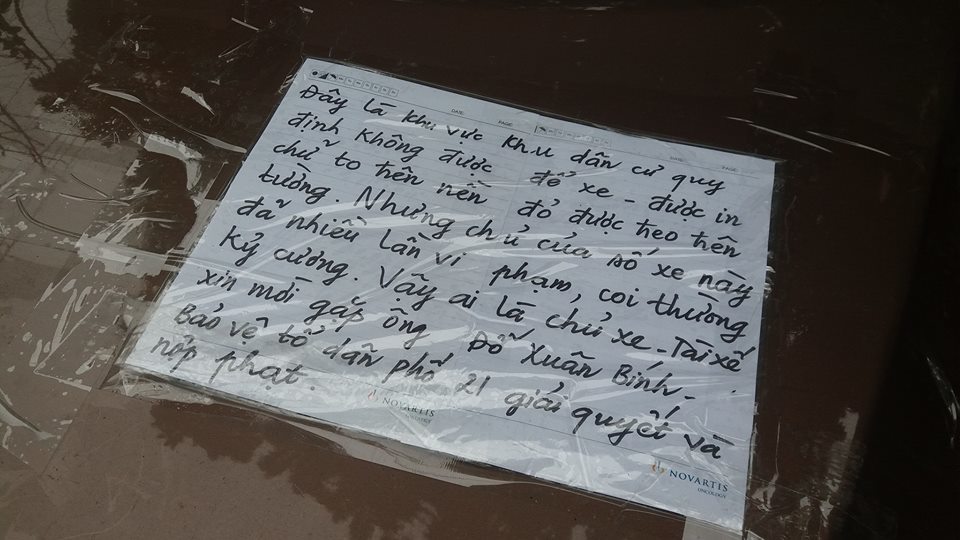 DATE: PAGE: DATE: PAGE:
Đây là khu vực khu dân cư quy
định không được để xe - được in
chữ to trên nền đỏ được treo trên
tường. Nhưng chủ của số xe này
đã nhiều lần vi phạm, coi thường
kỷ cương. Vậy ai là chủ xe - Tài xế
xin mời gặp ông Đỗ Xuân Bính -
Bảo vệ tổ dân phố 21 giải quyết và
nộp phạt.
NOVARTIS
ONCOLOGY
NOVARTIS
ONCOLOGY